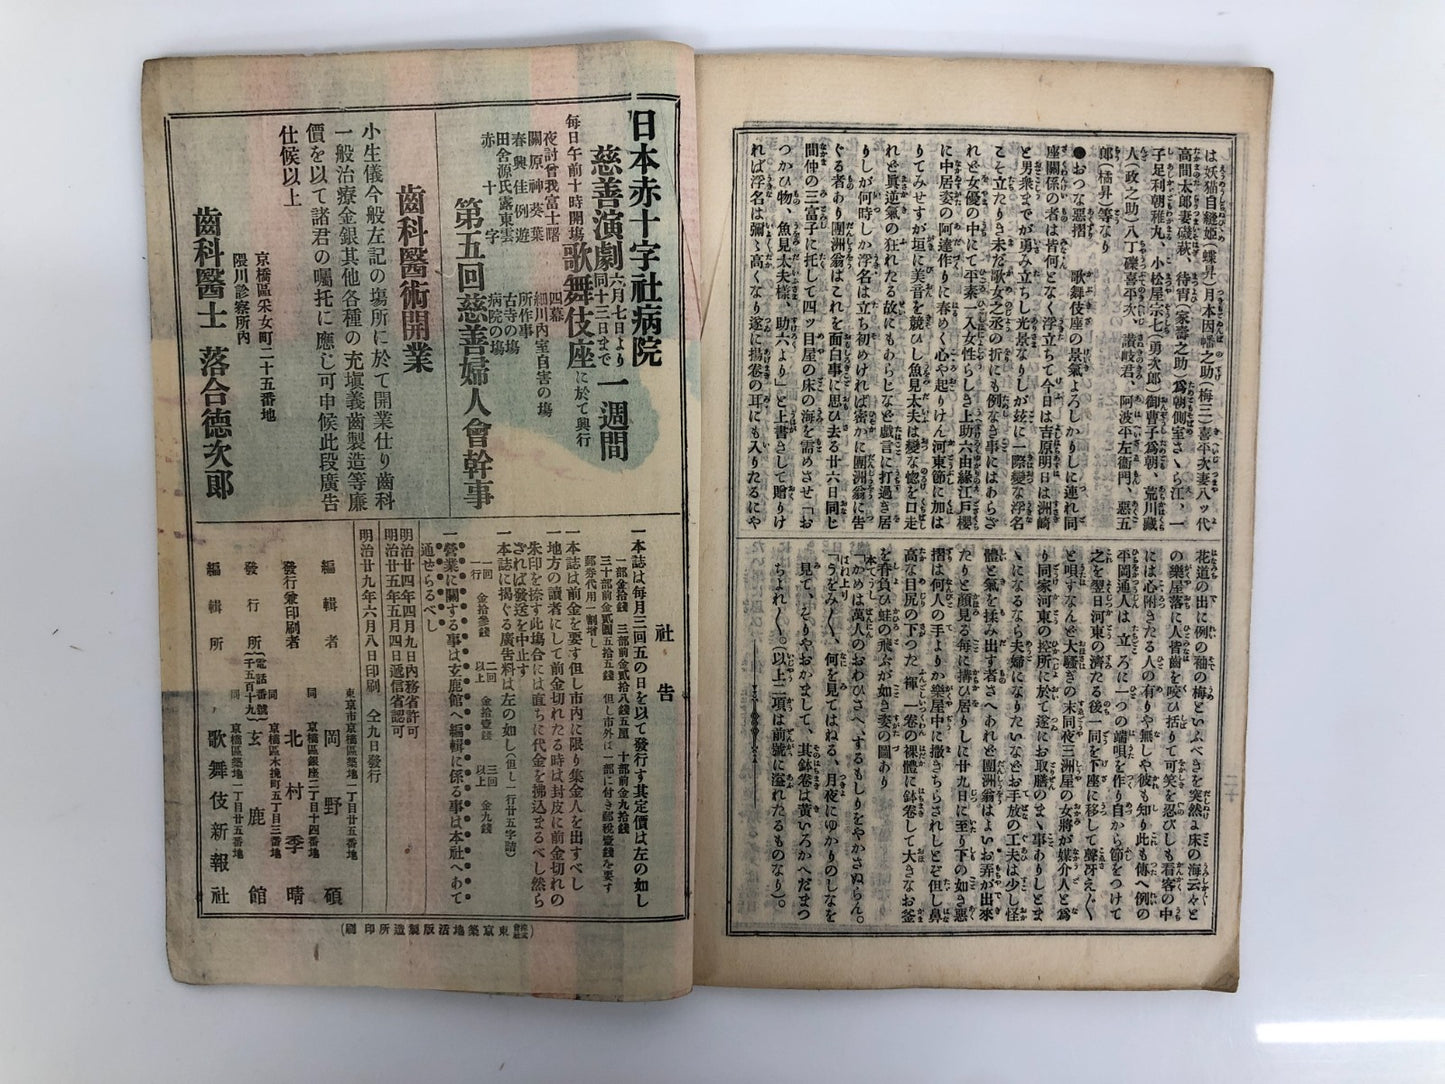 は妖猫自縫姫(蝶昇)月本因幡之助(梅三)喜平次妻八ッ代
高間太郎妻磯萩、待宵(家壽之助)爲朝側室さゝら江、一
子足利朝稚丸、小松屋宗七(勇次郎)御曹子爲朝、荒川藏
人(政之助)八丁礫喜平次、讃岐君、阿波平左衞門、惡五
郎(橘昇)等なり
●おつな惡摺　歌舞伎座の景氣よろしかりしに連れ同
座關係の者は皆何となく浮立ちて今日は吉原明日は洲崎
と男衆までが勇み立ちし光景なりしが玆に一際變な浮名
こそ立たりき未だ歌女之丞の折にも例なき事にはあらざ
れど女優の中にて平素一入女性らしき上助六由緣江戸櫻
に中居姿の阿達作りに春めく心や起りけん河東節に加は
りてみせすが垣に美音を競ひし魚見太夫は變な惚を口走
れど眞逆氣の狂れたる故にもあらじなど戯言に打過ぎ居
りしが何時しか浮名は立ち初めければ密かに團洲翁に告
ぐる者あり團洲翁はこれを面白事に思ひ去る廿六日同ヒ
間仲の三富子に托して四ッ目屋の床の海を需めさせ「お
つかひ物、魚見太夫樣、助六より」と上書きして贈りけ
れば浮名は彌々高くなり遂に揚卷の耳にも入りたるにや
花道の出に例の鞘の梅といふべきを突然ょ床の海云々と
の樂屋落に人皆齒を咬ひ括りて可笑を忍びしも看客の中
には心附きたる人の有りや無しや彼も知り此も傳へ例の
平岡通人は立ろに一つの端唄を作り自から節をつけて
之を翌日河東の濟たる後一同を下座に移して聲冴え〲
と唄すなんど大騷ぎの末同夜三洲屋の女將が媒介人と爲
り同家河東の控所に於て遂にお取膳のまゝ事ありしとま
ゝになるなら夫婦になりたいなどお手放の工夫は少し怪
體と氣を揉み出す者さへあれど團洲翁はよいお弄が出來
たりと顏見る每に搆ひ居りしに廿九日に至り下の如き惡
摺は何人の手よりか樂屋中に撒きちらされしとぞ但し鼻
高な目尻の下つた褌一卷の裸體に鉢卷して大きなお釜
を脊負ひ蛙の飛ぶが如き姿の圖あり
本てうし
「かめは萬人のおわひさへ、するもしりをやかさぬらん。
はれ上り
「うをみ〲、何を見てはねる、月夜にゆかりのしなを
見て、そりやおかまして、其鉢卷は黄いろかへだまつ
ちよれ〲。(以上二項は前號に溢れたるものなり)。
二十
日本赤十字社病院
慈善演劇六月七日より同十三日まで一週間
每日午前十時開塲歌舞伎座に於て興行
夜討曾我富士曙　四幕
關原神葵葉　細川內室自害の塲
春興佳例遊　所作事
田舍源氏露東雲　古寺の塲
赤十字　病院の塲
第五回慈善婦人會幹事
齒科醫術開業
小生儀今般左記の塲所に於て開業仕り齒科
一般治療金銀其他各種の充塡義齒製造等廉
價を以て諸君の囑托に應じ可申候此段廣告
仕候以上
京橋區采女町二十五番地
隈川診察所內
齒科醫士　落合德次郎
社告
一本誌は每月三回五の日を以て發行す其定價は左の如し
一部金拾錢　三部前金貳拾八錢五厘　十部前金九拾錢
三十部前金貳圓五拾五錢　但し市外は一部に付き郵税壹錢を要す
郵券代用一割增し
一本誌は前金を要す但し市內に限り集金人を出すべし
一地方の讀者にして前金切れたる時は封皮に前金切れの
朱印を捺す此塲合には直ちに代金を拂込まるべし然ら
ざれば發送を中止す
一本誌に揭ぐる廣告料は左の如し(但し一行廿五字詰)
一回一行　金拾參錢　二回以上　金拾壹錢　三回以上　金九錢
一營業に關する事は玄鹿館へ編輯に係る事は本社へあて
通せらるべし
明治廿四年四月九日內務省許可
明治廿五年五月四日遞信省認可
明治廿九年六月八日印刷　仝九日發行
東京市京橋區築地一丁目廿五番地
編輯者　岡野碩
同　京橋區銀座二丁目十四番地
發行兼印刷者　北村季晴
同　京橋區木挽町五丁目三番地
發行所(電話番號千五百十九)　玄鹿館
同　京橋區築地一丁目廿五番地
編輯所　歌舞伎新報社
(株式會社東京築地活版製造所印刷)